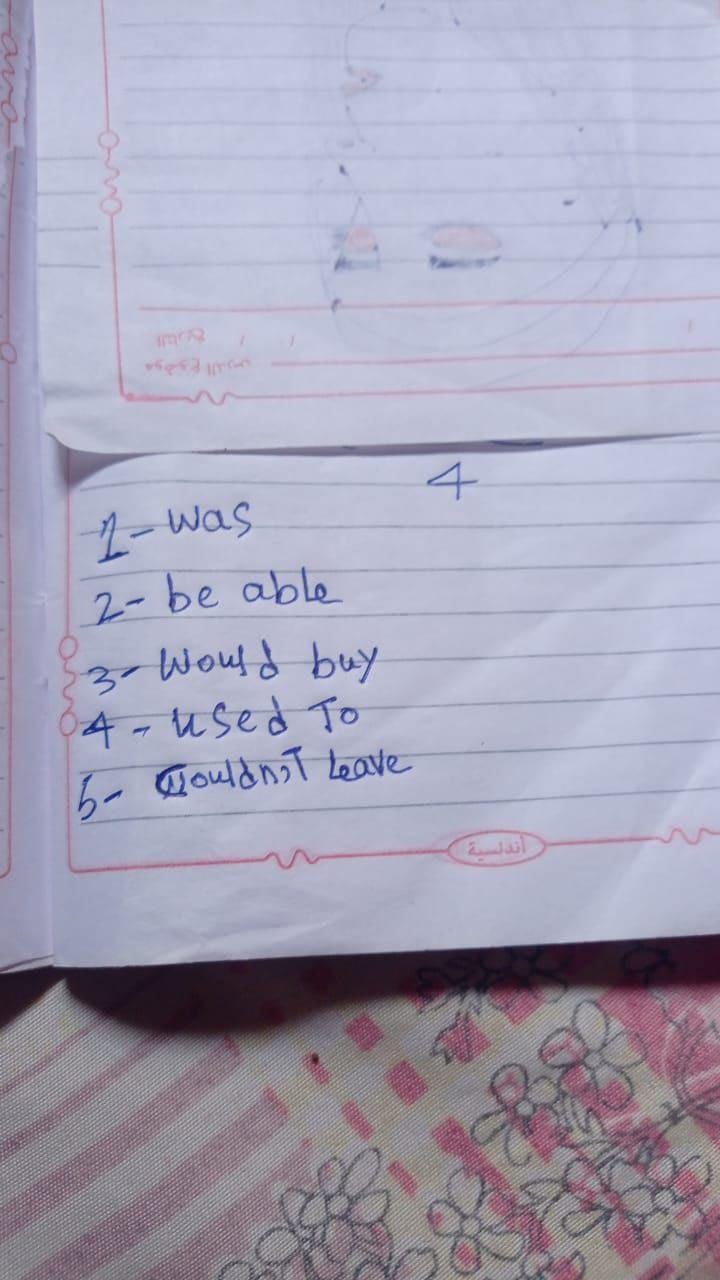 4
1- was
2- be able
3- Would buy
4- used To
5- Wouldn,T Leave
أندلسية